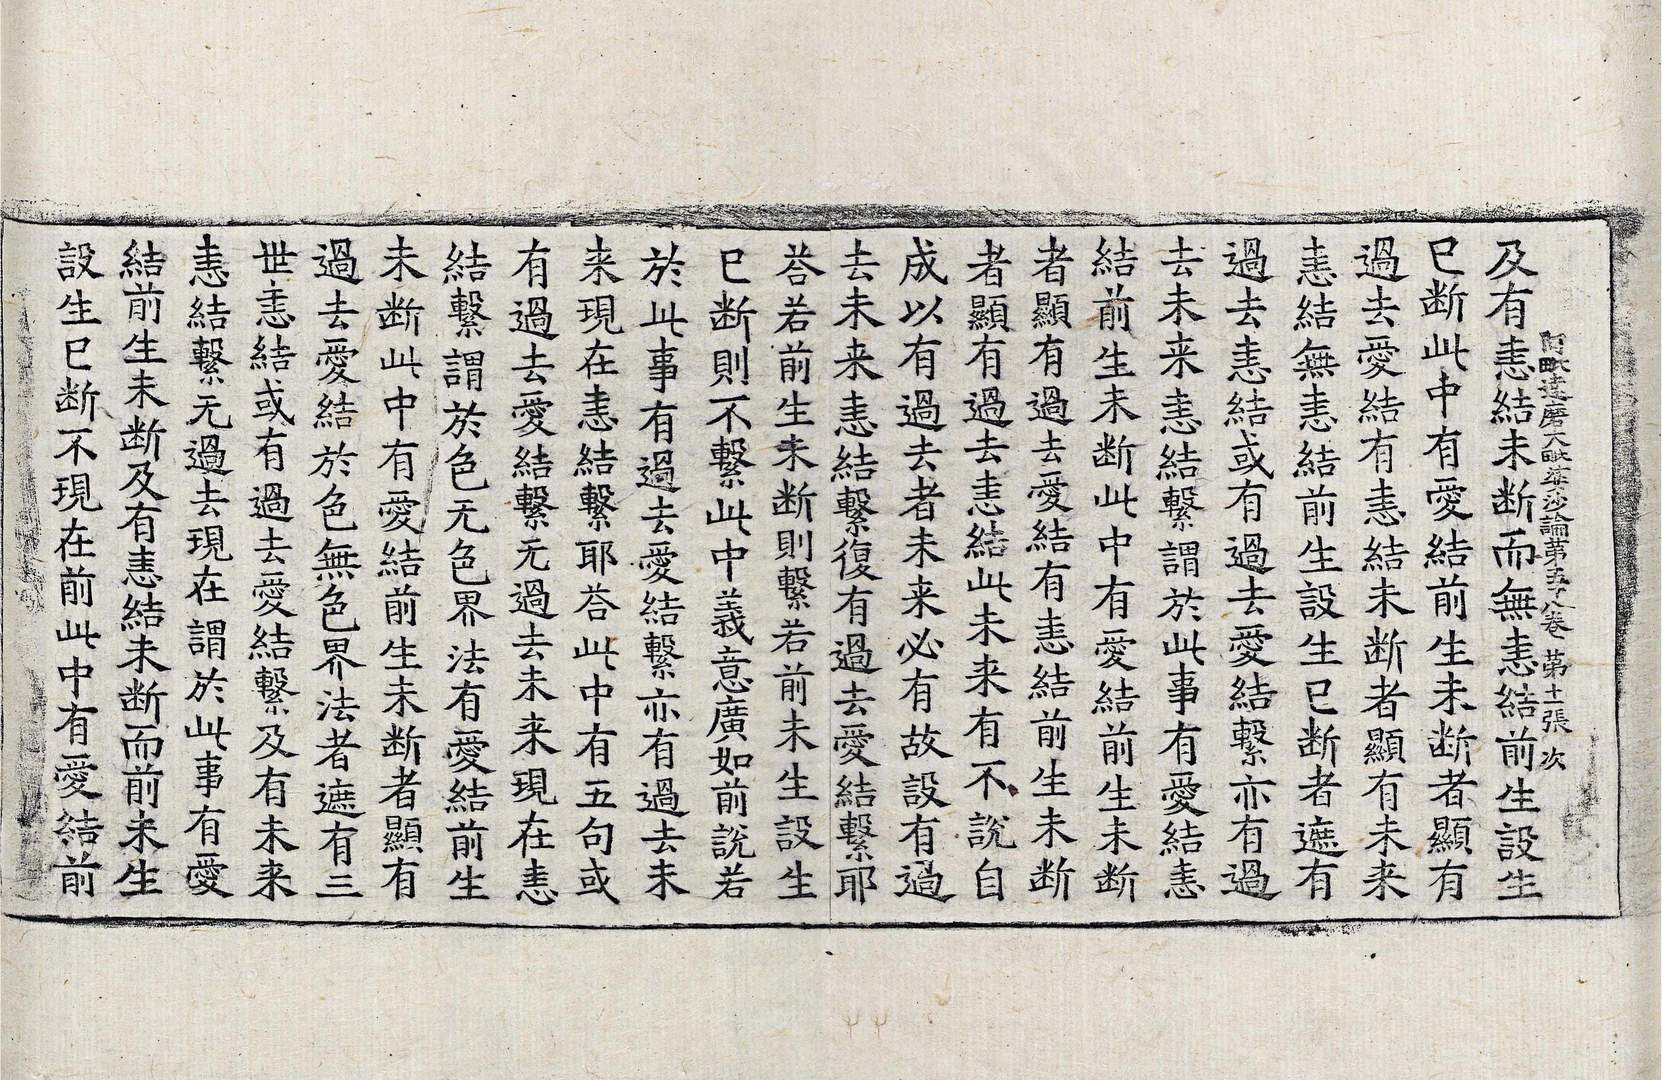 阿毗達磨大毗婆沙論第五十八卷 第十一張 次
及有恚結未断而無恚結前生設生
已断此中有愛結前生未断者顯有
過去愛結有恚結未断者顯有未来
恚結無恚結前生設生已断者遮有
過去恚結或有過去愛結繫亦有過
去未来恚結繫謂於此事有愛結恚
結前生未断此中有愛結前生未断
者顯有過去愛結有恚結前生未断
者顯有過去恚結此未来有不說自
成以有過去者未来必有故設有過
去未来恚結繫復有過去愛結繫耶
荅若前生未断則繫若前未生設生
已断則不繫此中義意廣如前說若
於此事有過去愛結繫亦有過去未
来現在恚結繫耶荅此中有五句或
有過去愛結繫无過去未来現在恚
結繫謂於色无色界法有愛結前生
未断此中有愛結前生未断者顯有
過去愛結於色無色界法者遮有三
世恚結或有過去愛結繫及有未来
恚結繫无過去現在謂於此事有愛
結前生未断及有恚結未断而前未生
設生已断不現在前此中有愛結前